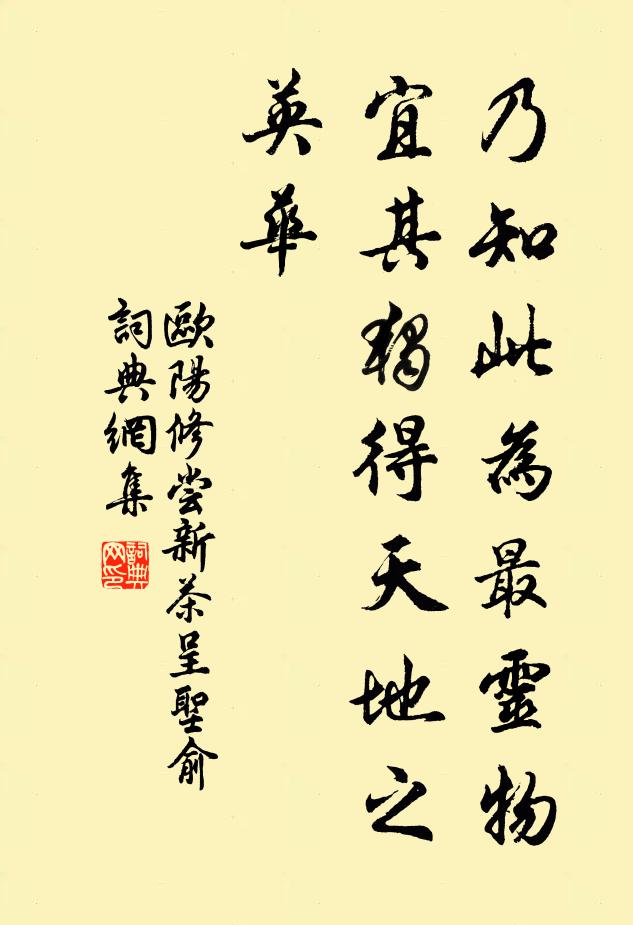 乃知此為最靈物
宜其獨得天地之
英華
歐陽修嘗新茶呈聖俞
詞典網集
詞典
网印